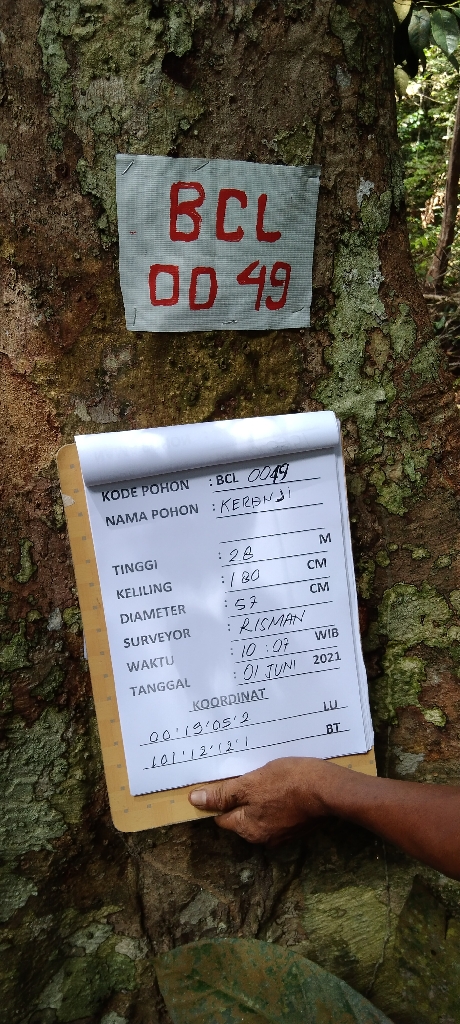 BCL
0049
KODE POHON : BCL 0049
NAMA POHON : KERANJI
TINGGI : 28 M
KELILING : 180 CM
DIAMETER : 57 CM
SURVEYOR : RISMAN
WAKTU : 10:07 WIB
TANGGAL : 01 JUNI 2021
KOORDINAT
00°19'05'2 LU
101°12'12'1 BT